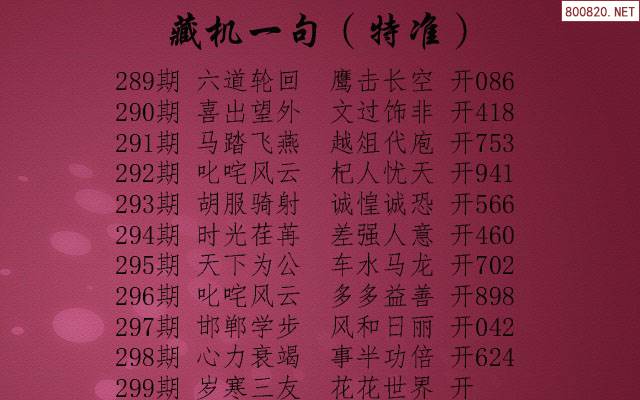 800820.NET
藏机一句（特准）
289期 六道轮回 鹰击长空 开086
290期 喜出望外 文过饰非 开418
291期 马踏飞燕 越俎代庖 开753
292期 叱咤风云 杞人忧天 开941
293期 胡服骑射 诚惶诚恐 开566
294期 时光荏苒 差强人意 开460
295期 天下为公 车水马龙 开702
296期 叱咤风云 多多益善 开898
297期 邯郸学步 风和日丽 开042
298期 心力衰竭 事半功倍 开624
299期 岁寒三友 花花世界 开